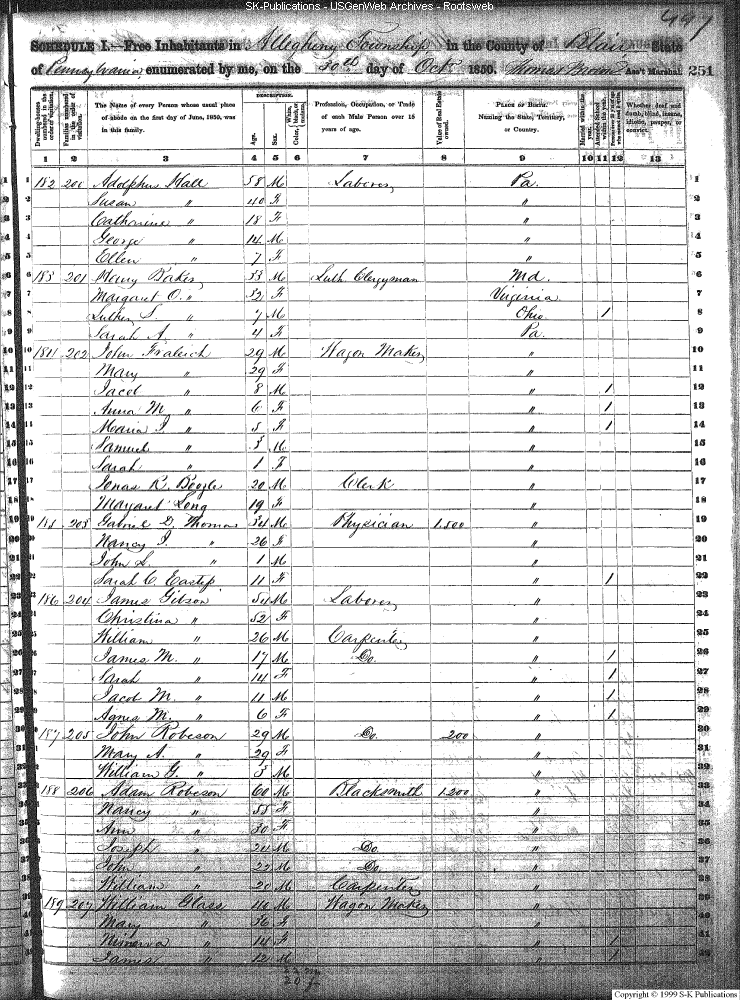 SK-Publications - USGenWeb Archives - Rootsweb
497
SCHEDULE I.—Free Inhabitants in Allegheny Township in the County of Blair State
of Pennsylvania enumerated by me, on the 30th day of Oct. 1850. Ass't Marshal. 251
Dwelling-houses numbered in the order of visitation.
Families numbered in the order of visitation.
The Name of every Person whose usual place of abode on the first day of June, 1850, was in this family.
DESCRIPTION.
Age.
Sex.
Profession, Occupation, or Trade of each Male Person over 15 years of age.
Value of Real Estate owned.
PLACE OF BIRTH. Naming the State, Territory, or Country.
Married within the year.
Attended School within the year.
Whether deaf and dumb, blind, insane, idiotic, pauper, or convict.
1 2 3 4 5 6 7 8 9 10 11 12 13
1 182 200 Adolphus Hall 58 M Laborer Pa. 1
2 Susan " 40 F " 2
3 Catharine " 18 F " 3
4 George " 14 M " 4
5 Ellen " 7 F " 5
6 183 201 Henry Baker 33 M Luth. Clergyman Md. 6
7 Margaret O. " 32 F Virginia 7
8 Luther S. " 7 M Ohio 1 8
9 Sarah A. " 4 F Pa. 9
10 184 202 John Fraleich 29 M Wagon Maker " 10
11 Mary " 29 F " 11
12 Jacob " 8 M " 1 12
13 Anna M. " 6 F " 1 13
14 Maria J. " 5 F " 1 14
15 Samuel " 3 M " 15
16 Sarah " 1 F " 16
17 Jonas R. 20 M Clerk " 17
18 Margaret Long 19 F " 18
19 185 203 Gabriel D. Thomas 34 M Physician 1.500 " 19
20 Nancy J. " 26 F " 20
21 John S. " 1 M " 21
22 Sarah C. 11 F " 1 22
23 186 204 James Gibson 54 M Laborer " 23
24 Christina " 52 F " 24
25 William " 26 M Carpenter " 25
26 James M. " 17 M Do. " 1 26
27 Sarah " 14 F " 1 27
28 Jacob M. " 11 M " 1 28
29 Agnes M. " 6 F " 1 29
30 187 205 John Robeson 29 M Do. 200 " 30
31 Mary A. " 29 F " 31
32 William G. " 3 M " 32
33 188 206 Adam Robeson 60 M Blacksmith 1.200 " 33
34 Nancy " 55 F " 34
35 Ann " 30 F " 35
36 Joseph " 24 M Do. " 36
37 John " 22 M Do. " 37
38 William " 20 M Carpenter " 38
39 189 207 William Glass 40 M Wagon Maker " 39
40 Mary " 36 F " 40
41 Minerva " 14 F " 1 41
42 James " 12 M " 1 42
22 m
20 f
Copyright © 1999 S-K Publications